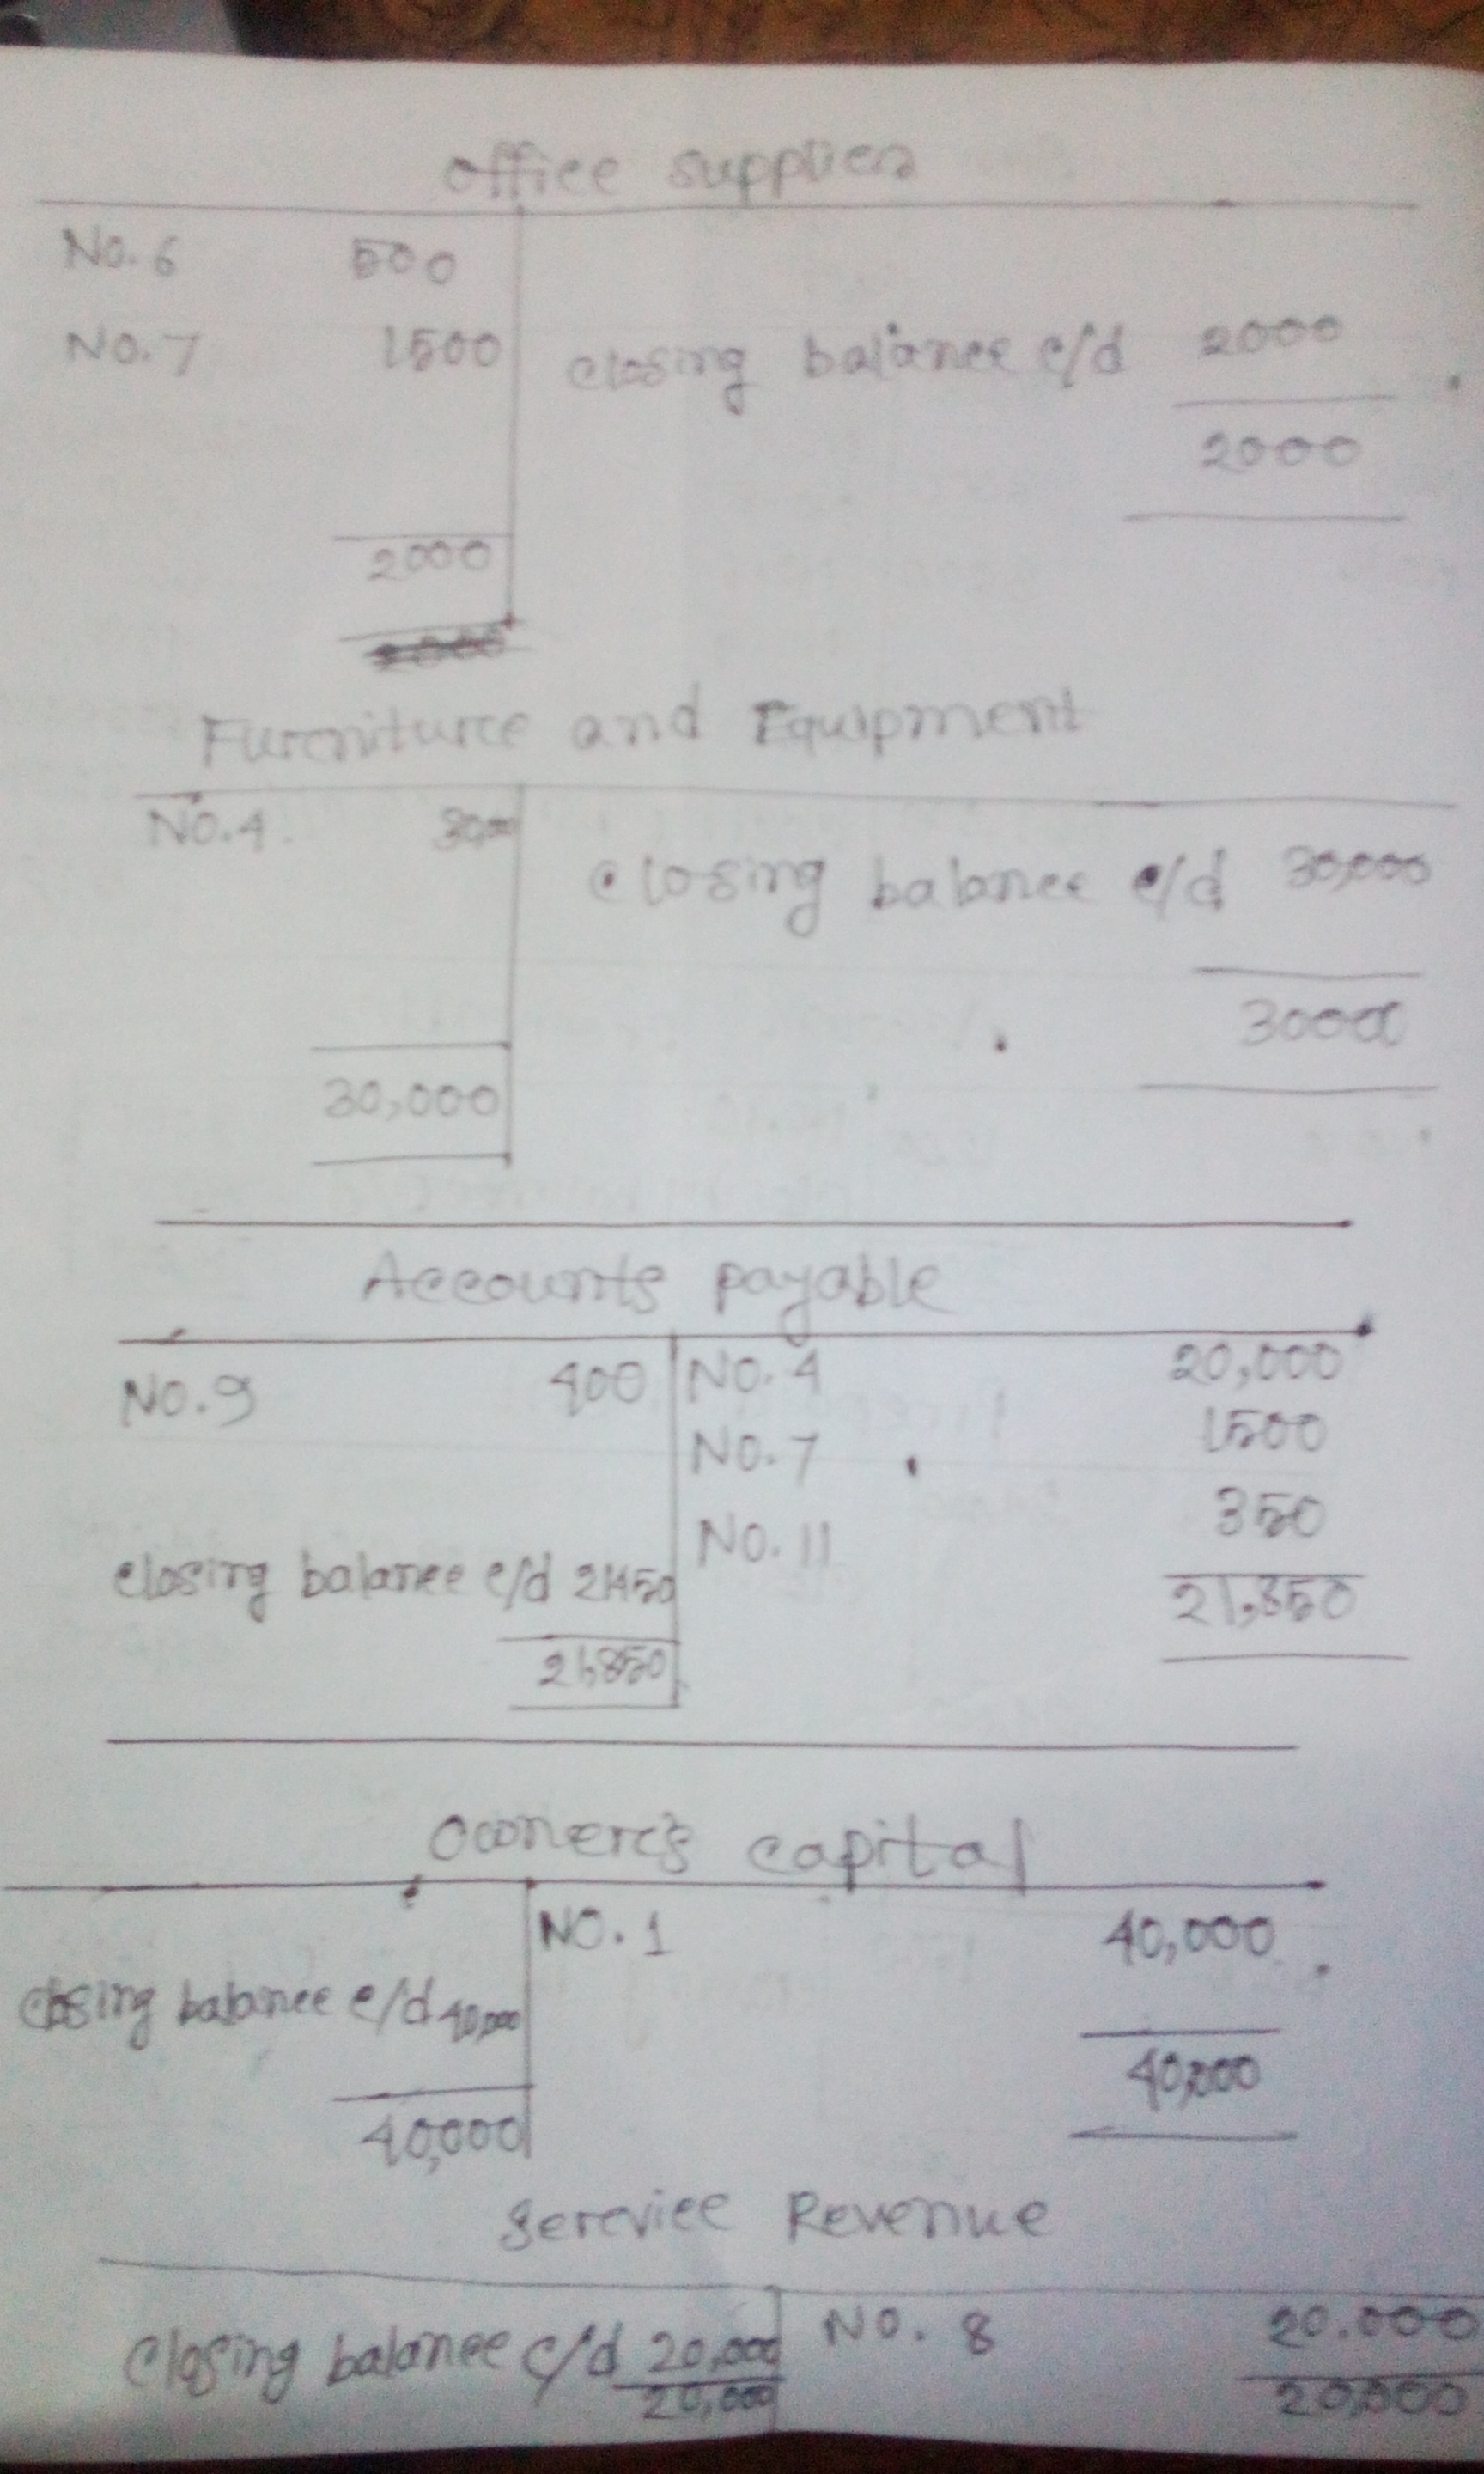 Office supplies
No. 6 500
No. 7 1500 closing balance c/d 2000
2000
2000
Furniture and Equipment
No. 4. closing balance c/d 30,000
30,000
Accounts payable
No. 9 400 No. 4 20,000
No. 7 1500
No. 11 350
closing balance c/d 21450 21,850
21,850
Owner's capital
No. 1 40,000
closing balance c/d 40,000
40,000
40,000
Service Revenue
closing balance c/d 20,000 No. 8 20.000
20,000 20,000